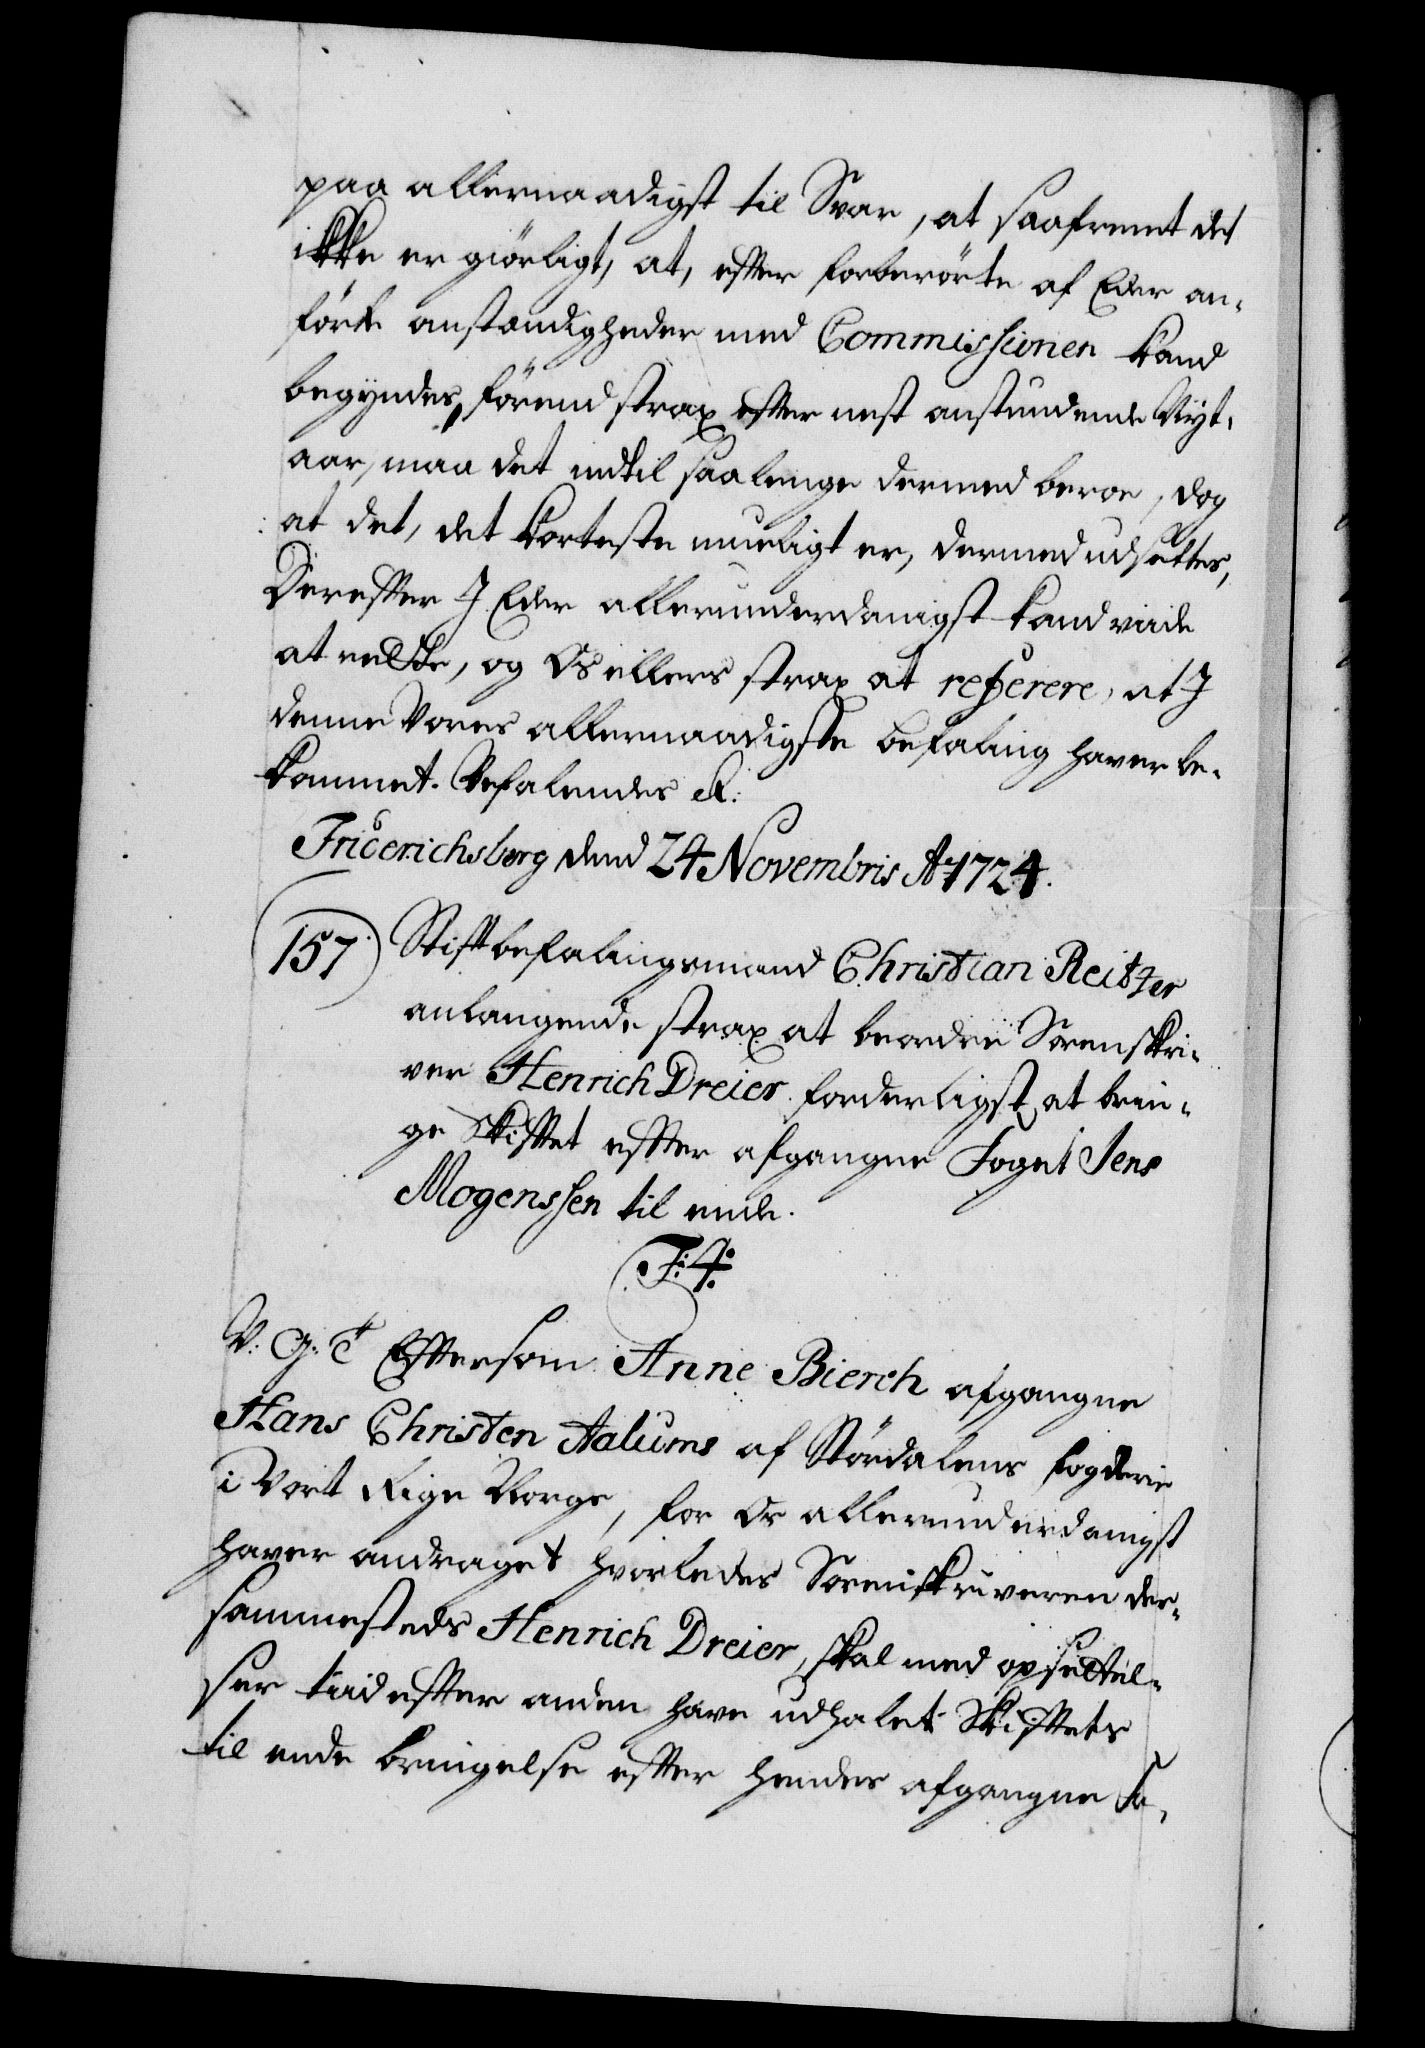 paa allernaadigst til Svar, at saafremt det
ikke er giørligt, at, efter forberørte af Eder an-
førte anstændigheder med Commissionen kand
begyndes, förend strax efter nest anstundende Nyt-
aar, maa det indtil saalenge dermed beroe, dog
at det, det korteste mueligt er, dermed udsettes,
Derefter I Eder allerunderdanigst kand viide
at rette, og Os ellers strax at referere, at I
denne Vores allernaadigste befaling haver be-
kommet. Befalendes &:
Friderichsberg dend 24 Novembris Ao 1724.
157 Stiftbefalingsmand Christian Reitzer
anlangende strax at beordre Sorenskri-
ver Henrich Dreier forderligst at brin-
ge Skiftet efter afgangne Foget Jens
Mogenssen til ende.
F: 4:
V: G: T Eftersom Anne Bierch afgangne
Hans Christen Aalums af Stördalens fogderie
i Vort Rige Norge, for Os allerunderdanigst
haver andraget hvorledes Sorenskriveren der-
sammesteds Henrich Dreier, skal med opsettel-
ser tiid efter anden have udhalet Skiftets
til ende bringelse efter hendes afgangne Fa-